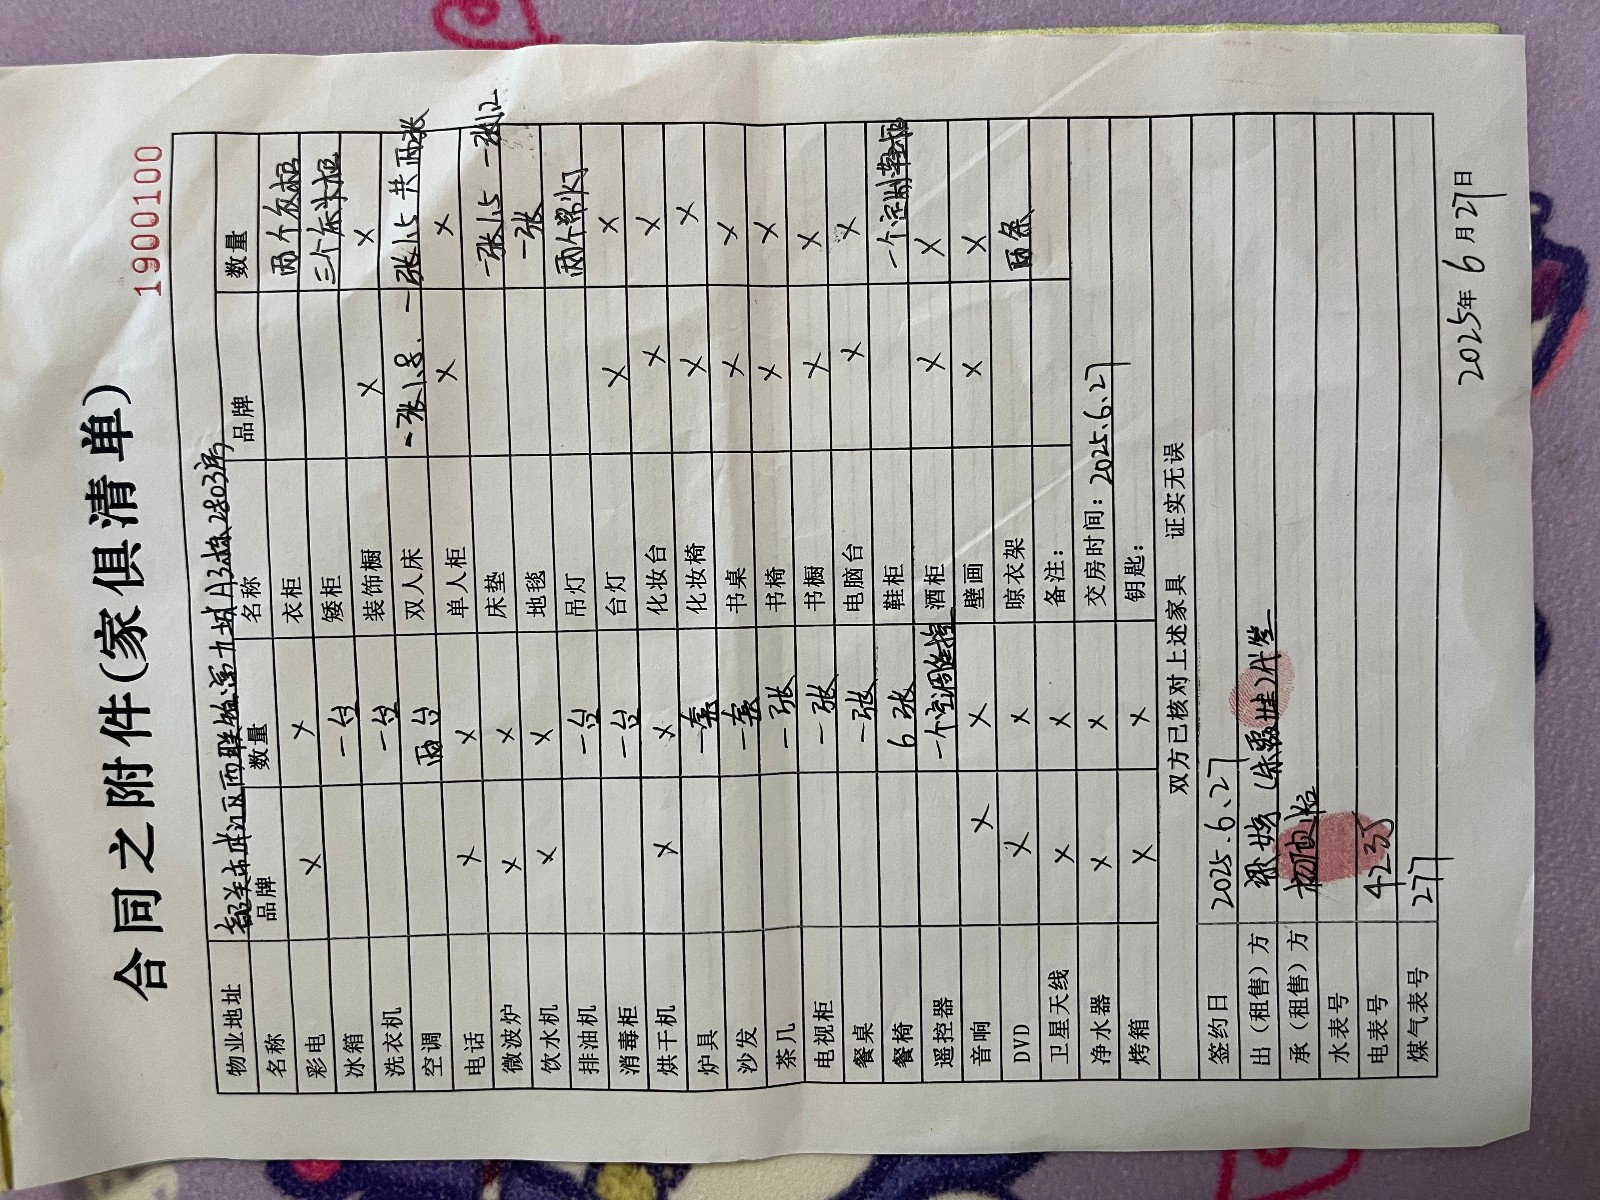 合同之附件(家俱清单)
1900100
物业地址 韶关市浈江区西联恒富九城A3栋2803房
名称 品牌 数量 名称 品牌 数量
彩电 × × 衣柜 两个衣柜
冰箱 一台 矮柜 三个床头柜
洗衣机 一台 装饰橱 × ×
空调 两台 双人床 一张1.8、一张1.5 共两张
电话 × × 单人柜 × ×
微波炉 × × 床垫 一张1.5 一张1.2
饮水机 × × 地毯 一张
排油机 一台 吊灯 两个吊灯
消毒柜 一台 台灯 × ×
烘干机 × × 化妆台 × ×
炉具 一套 化妆椅 × ×
沙发 一套 书桌 × ×
茶几 一张 书椅 × ×
电视柜 一张 书橱 × ×
餐桌 一张 电脑台 × ×
餐椅 6张 鞋柜 一个定制鞋柜
遥控器 一个空调遥控 酒柜 × ×
音响 × × 壁画 × ×
DVD × × 晾衣架 两条
卫星天线 × × 备注：
净水器 × × 交房时间：2025.6.27
烤箱 × × 钥匙：
双方已核对上述家具 证实无误
签约日 2025.6.27
出（租售）方 代签
承（租售）方
水表号
电表号 4235
煤气表号 27
2025年 6月27日